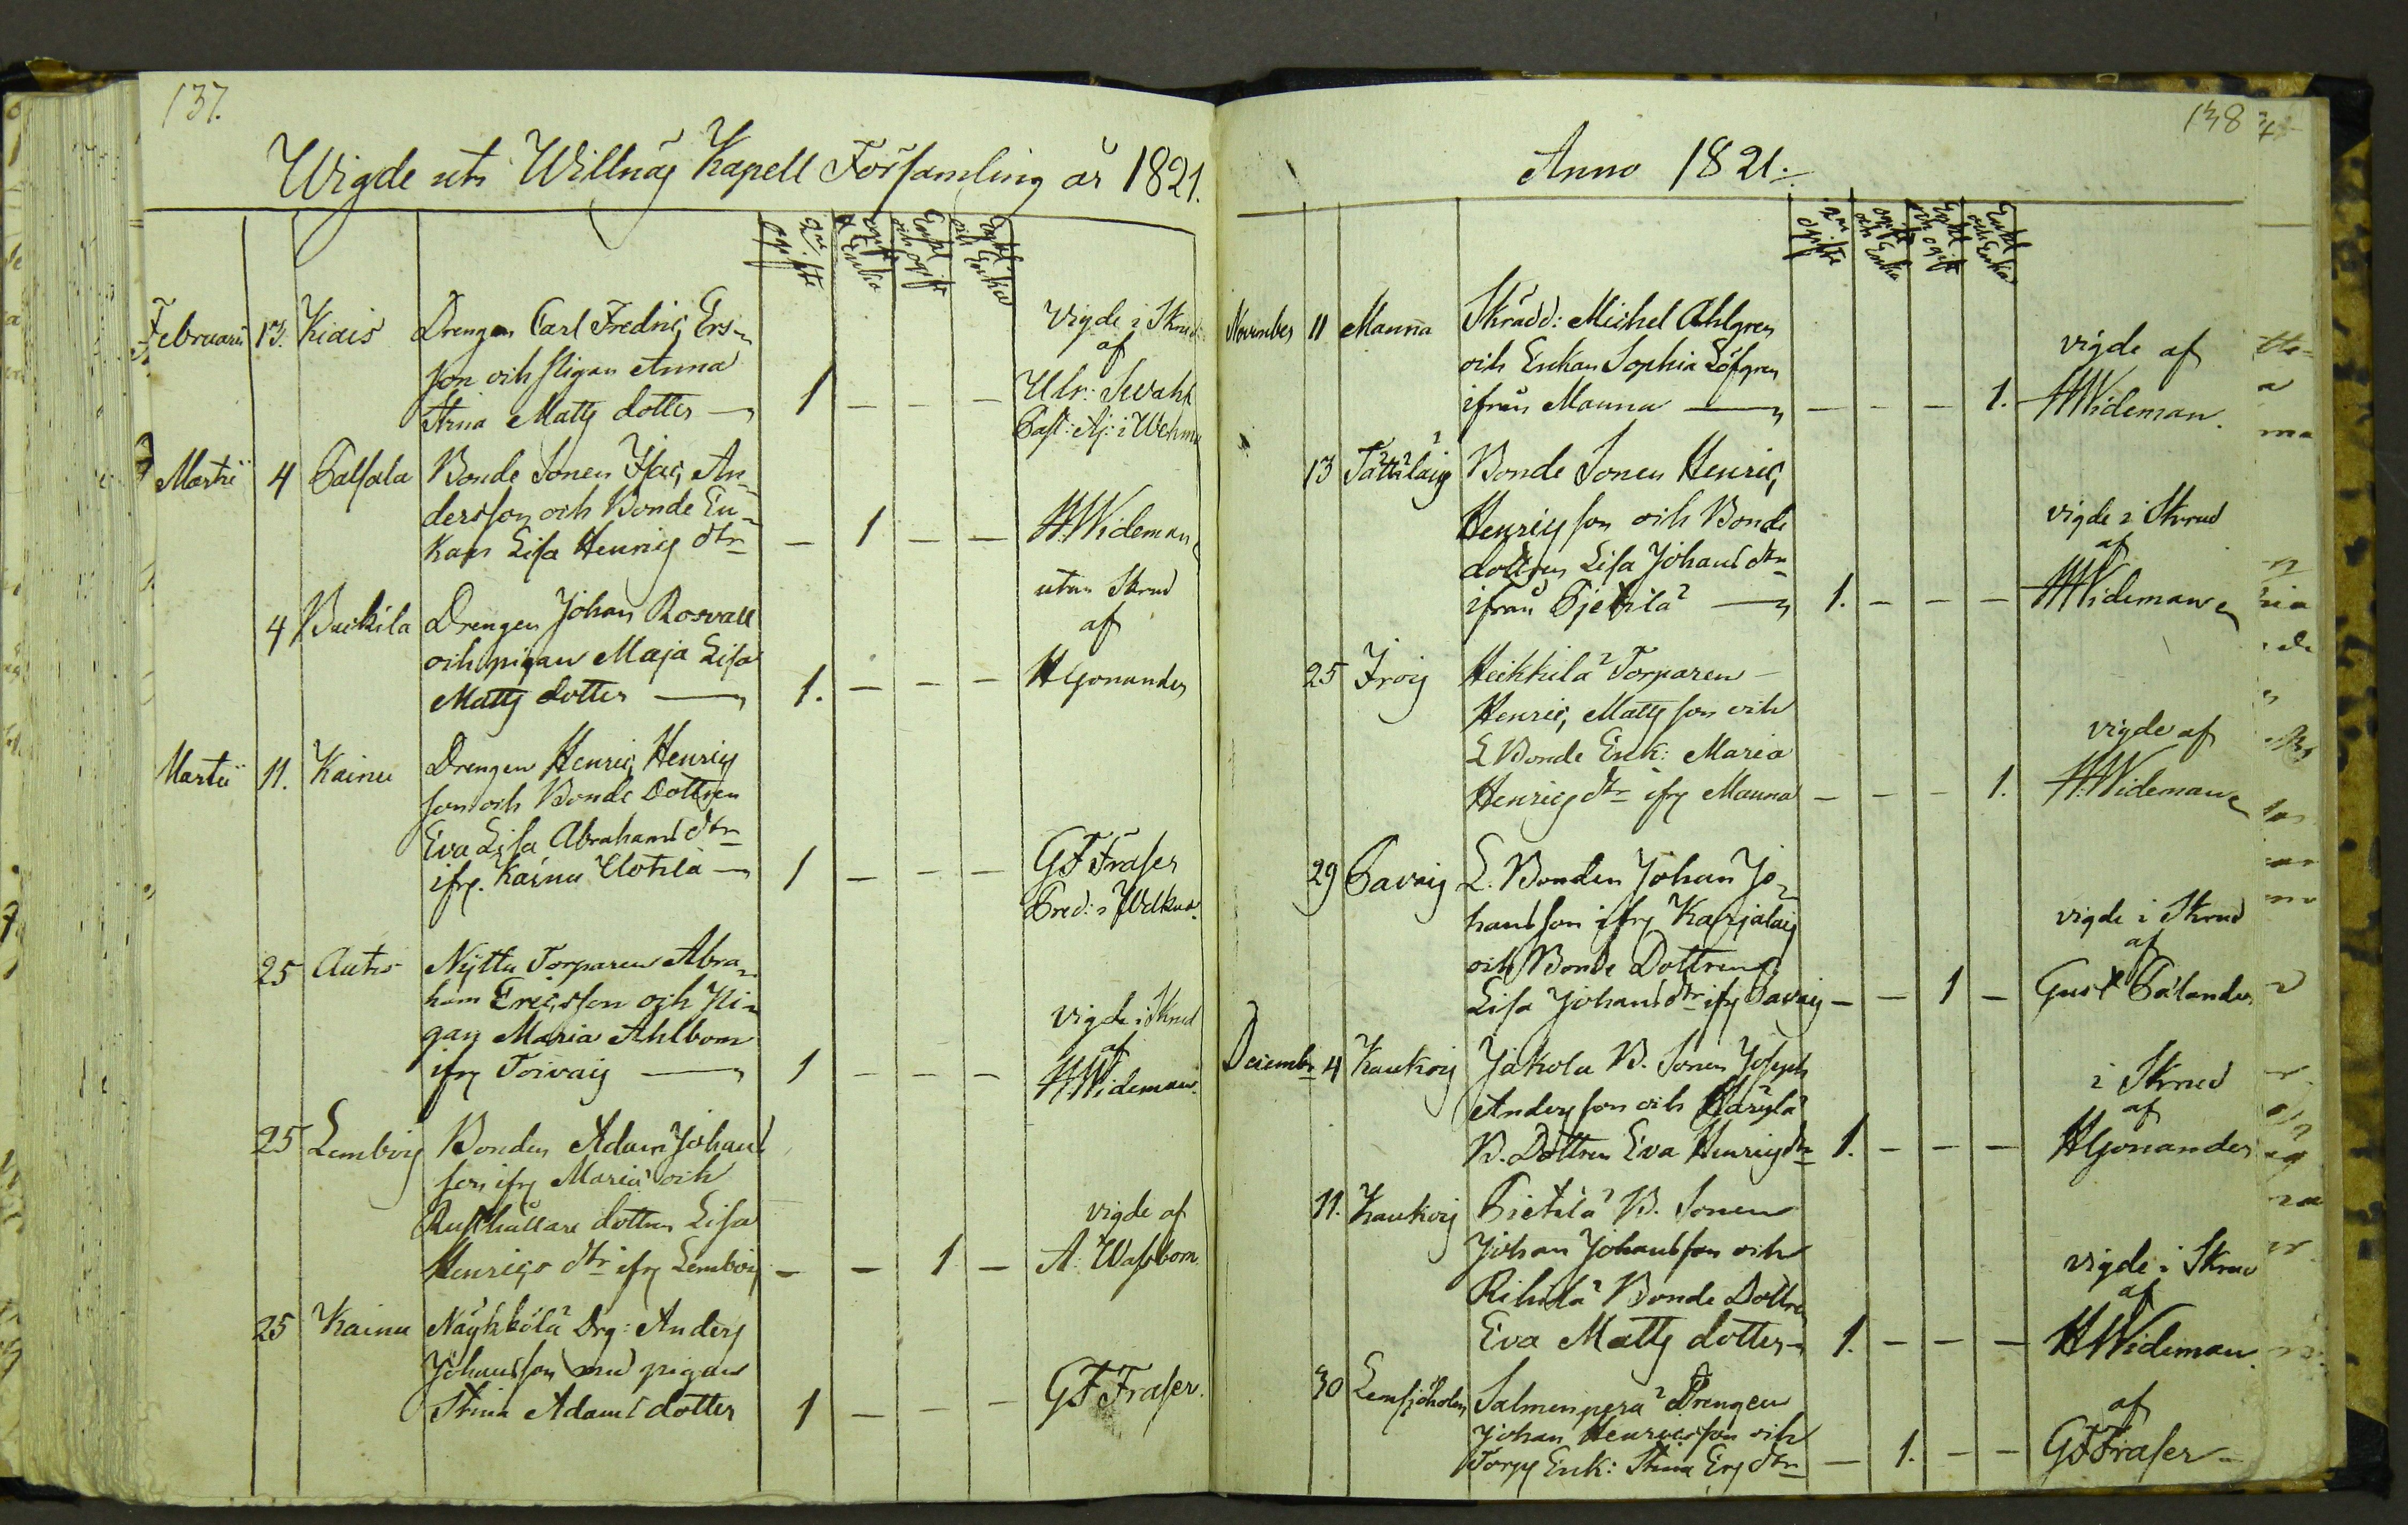 137.
Wigde uti Willnäs Kapell Församling år 1821.
2ne ogifte
ogift & Enka
Enkl och ogift
Enkl och Enka
Februarii 13. Kiais Drengen Carl Fredric Ers-
son och Pigan Anna
Stina Matts dotter 1 — — —
Vigde i Skrud
af
Ulr: Sevahl
Past: Aj: i Wehmo
Martii 4 Palsala Bonde Sonen Isac An-
dersson och Bonde En-
kan Lisa Henrics dtr — 1 — — H. Wideman
4 Backila Drengen Johan Rosvall
och pigan Maja Lisa
Matts dotter 1. — — —
utan Skrud
af
H Gonander
Martii 11. Kainu Drengen Henric Henrics
son och Bonde Dottren
Eva Lisa Abrahams dtr
ifrn. Kainu Uotila 1 — — —
G F Fraser
Pred: i Welkua.
25 Autio Nytta Torparen Abra-
ham Ericsson och Pi-
gan Maria Ahlbom
ifrn Toivais 1 — — —
vigde i Skrud
af
H Wideman
25 Lembois Bonden Adam Johans
son ifrn Maria och
Rusthållare dottren Lisa
Henrics dtr ifrn Lembois — — 1 —
vigde af
A. Wassbom
25 Kainu Näyhkölä Drg: Anders
Johansson med pigan
Stina Adams dotter 1 — — — G F Fraser.
138
Anno 1821.
2ne ogifte
ogift och Enka
Enkl och ogift
Enkl och Enka
November 11 Mauna Skrädd: Michel Ahlgren
och Enkan Sophia Löfgren
ifrån Mauna — — — 1.
vigde af
H Wideman.
13 Tättäläis Bonde Sonen Henric
Henrics son och Bonde
dottren Lisa Johans dtr
ifrån Pietilä 1. — — —
vigde i Skrud
af
H Wideman
25 Irois Heikkilä Torparen
Henric Matts son och
L Bonde Enk: Maria
Henrics dtr ifrn Mauna — — — 1.
vigde af
H. Wideman
29 Pavais L. Bonden Johan Jo-
hansson ifrn Karjalais
och Bonde Dottren
Lisa Johans dtr ifrn Pavais — — 1 —
vigde i Skrud
af
Gust Palander
Decembr 4 Kaukois Jakola B. Sonen Joseph
Anders son och
B. Dottren Eva Henrics dtr 1. — — —
i Skrud
af
H Gonander
11. Kaukois Pietilä B. Sonen
Johan Johansson och
Rihilä Bonde Dottren
Eva Matts dotter 1. — — —
vigde i Skrud
af
H Wideman.
30 Lemsjöholm Salmenperä Drengen
Johan Henricsson och
Torp Enk: Stina Ers dtr — 1. — —
af
G F Fraser